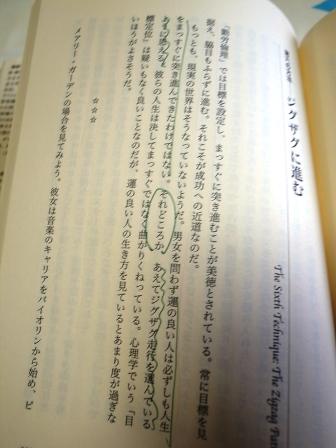 ジグザグに進む
The Sixth Technique: The Zigzag Path
「勤労倫理」では目標を設定し、まっすぐに突き進むことが美徳とされている。常に目標を見
据え、脇目もふらずに進む。それこそが成功への近道なのだ。
もっとも、現実の世界はそうなっていないようだ。男女を問わず運の良い人は必ずしも人生
をまっすぐに突き進んできたわけではない。それどころか、あえてジグザグ走行を選んでいる
ように思える。彼らの人生は決してまっすぐではなく曲がりくねっている。心理学でいう「目
標定位」は疑いもなく良いことなのだが、運の良い人の生き方を見ているとあまり度が過ぎな
いほうがよさそうだ。
☆☆☆
メアリー・ガーデンの場合を見てみよう。彼女は音楽のキャリアをバイオリンから始め、ピ